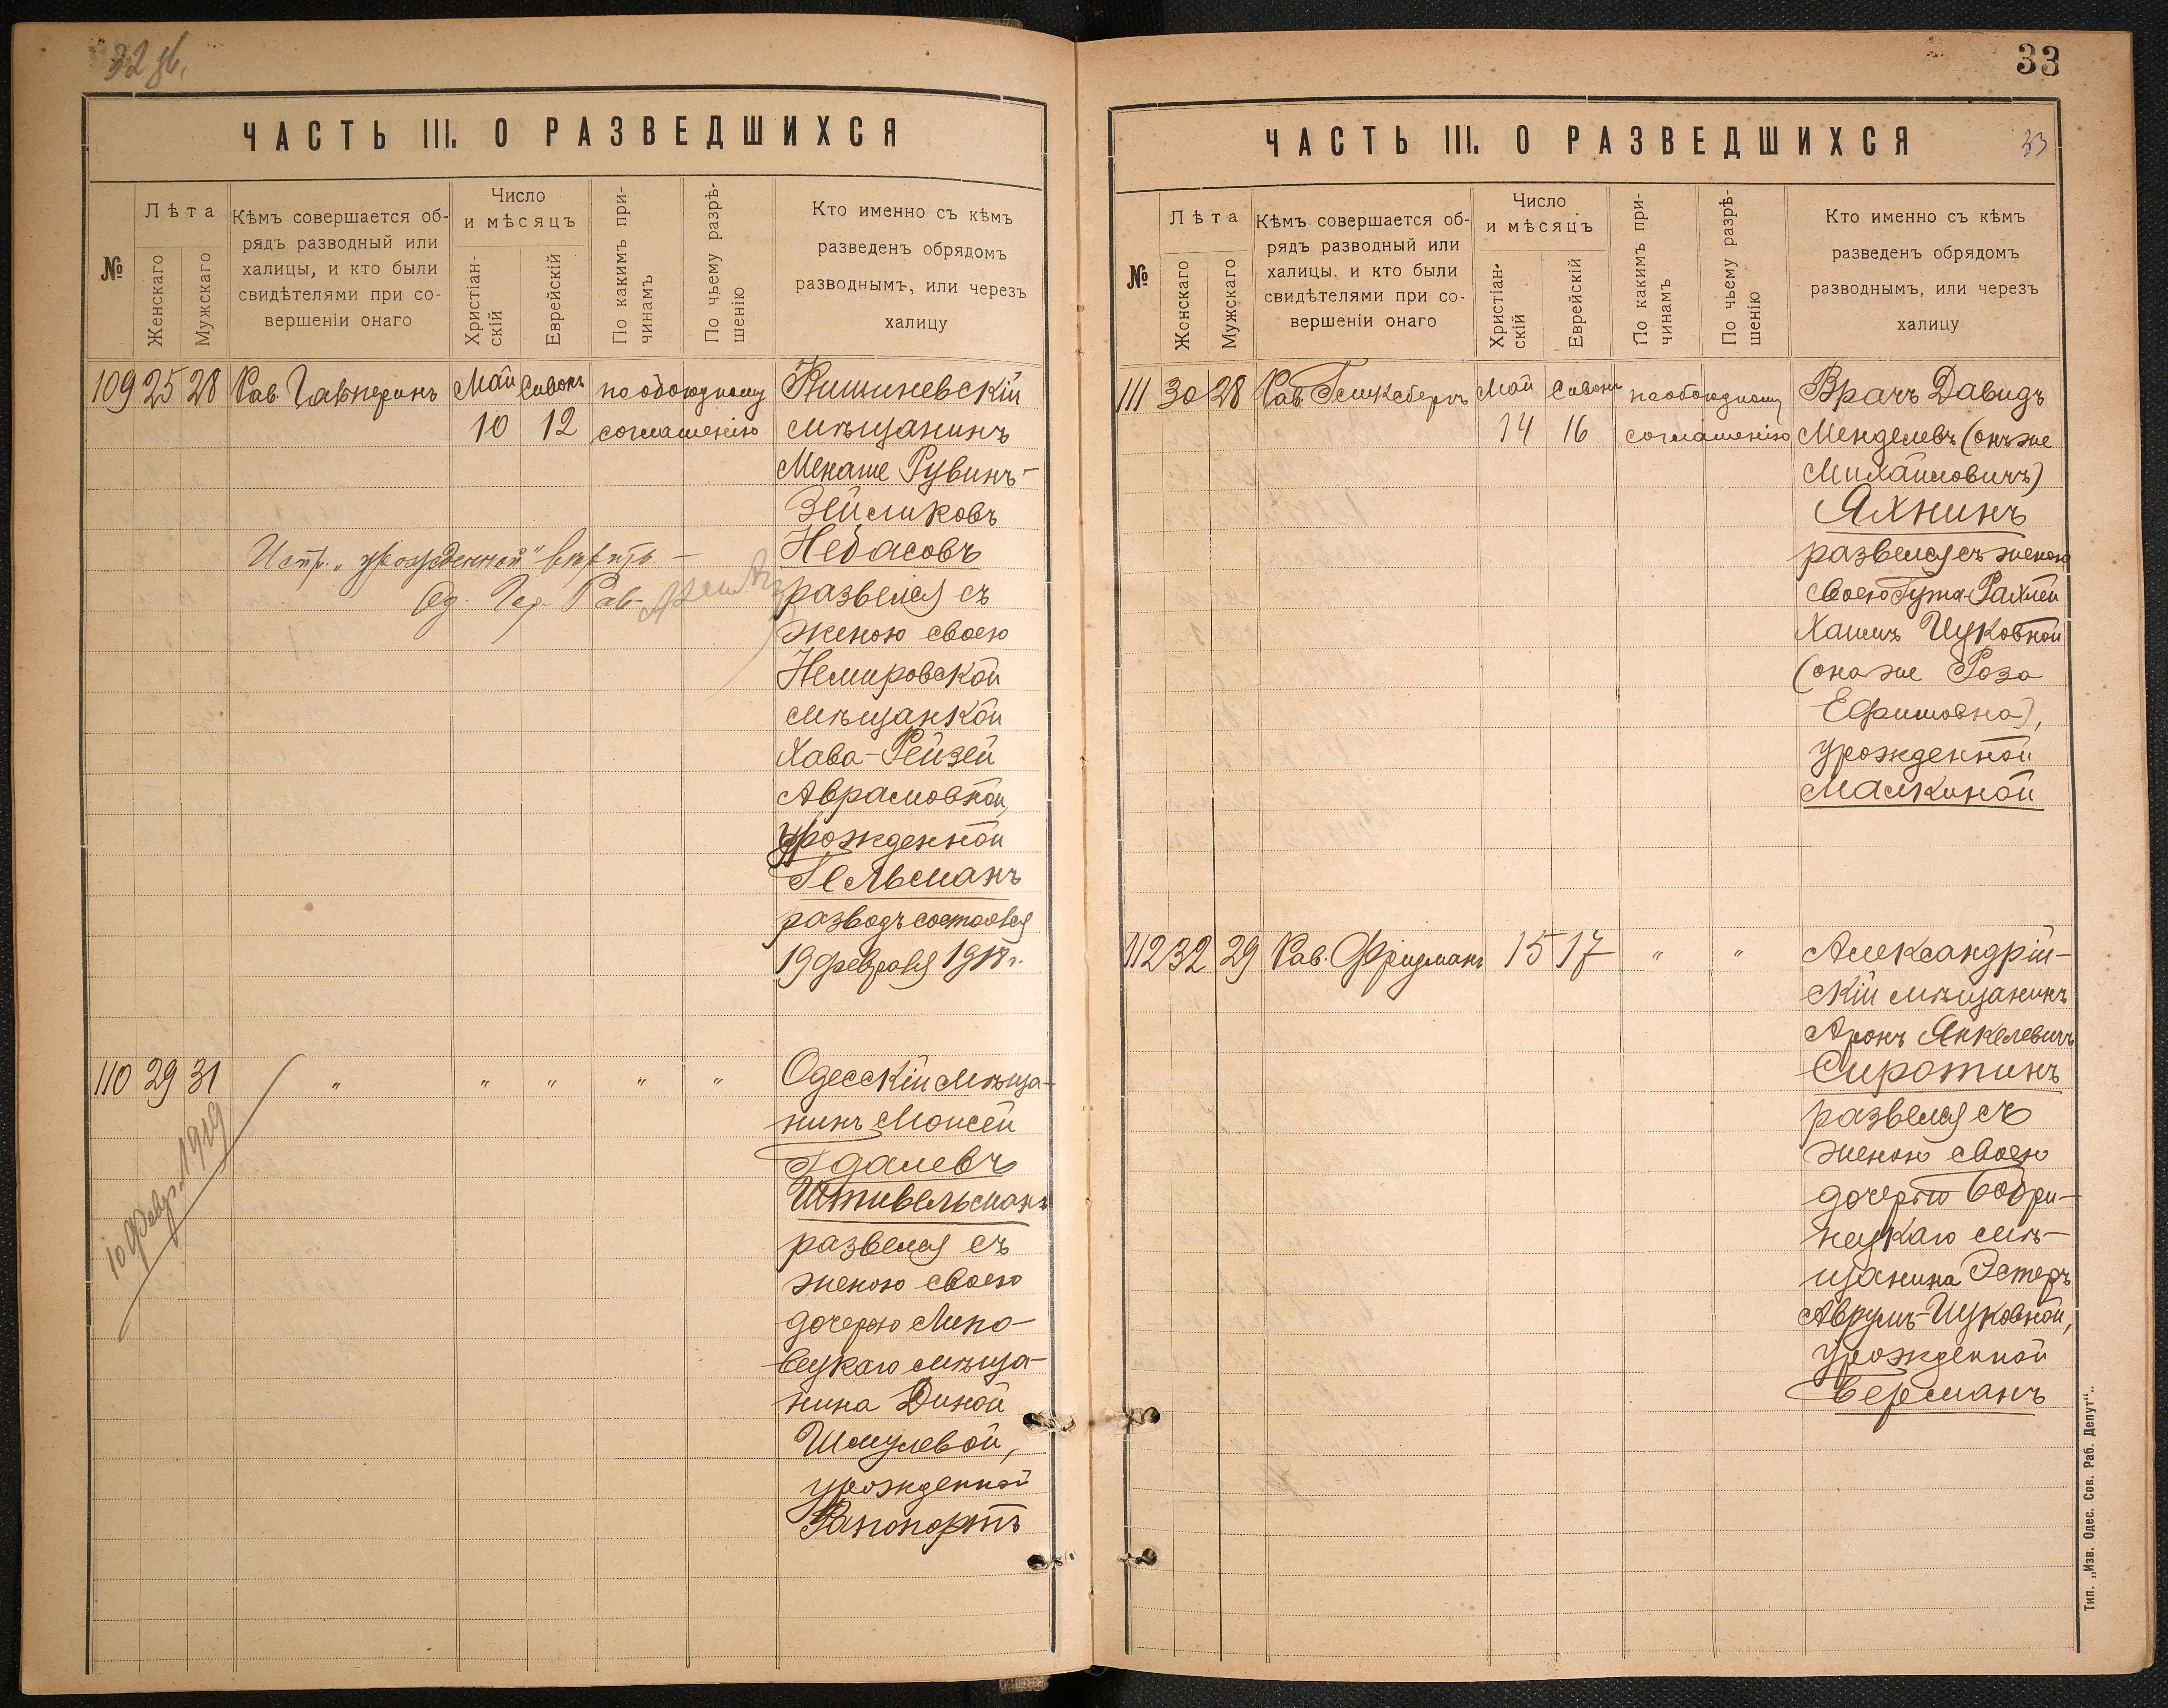 32 об.
ЧАСТЬ III. О РАЗВЕДШИХСЯ
№
Лѣта
Женскаго
Мужскаго
Кѣмъ совершается об-
рядъ разводный или
халицы, и кто были
свидѣтелями при со-
вершеніи онаго
Число
и мѣсяцъ
Христіан-
скій
Еврейскій
По какимъ при-
чинамъ
По чьему разрѣ-
шенію
Кто именно съ кѣмъ
разведенъ обрядомъ
разводнымъ, или черезъ
халицу
109 25 28 Рав. Гальперинъ Май Сивонъ по обоюдному Кишиневскій
10 12 соглашенію мѣщанинъ
Менаше Рувинъ-
Зейликовъ
Небасовъ
Испр. „урожденной" вѣрить —
Од. Гор. Рав.
развелся съ
женою своею
Немировской
мѣщанкой
Хава-Рейзей
Аврамовной,
урожденной
Гельманъ
разводъ состоялся
19 февраля 1918 г.
110 29 31 „ „ „ „ „ Одесскій мѣща-
нинъ Моисей
Гдалевъ
Штивельманъ
развелся съ
женою своею
дочерью Липо-
вецкаго мѣща-
нина Диной
Шмулевой,
урожденной
Рапопортъ
10 февр. 1919
33
ЧАСТЬ III. О РАЗВЕДШИХСЯ
33
№
Лѣта
Женскаго
Мужскаго
Кѣмъ совершается об-
рядъ разводный или
халицы, и кто были
свидѣтелями при со-
вершеніи онаго
Число
и мѣсяцъ
Христіан-
скій
Еврейскій
По какимъ при-
чинамъ
По чьему разрѣ-
шенію
Кто именно съ кѣмъ
разведенъ обрядомъ
разводнымъ, или черезъ
халицу
111 30 28 Рав. Гейксбергъ Май Сивонъ по обоюдному Врачъ Давидъ
14 16 соглашенію Менделевъ (онъ же
Михайловичъ)
Яхнинъ
развелся съ женою
своею Гута-Рахлей
Хаимъ Ицковной
(она же Роза
Ефимовна),
урожденной
Малкиной
112 32 29 Рав. Фридманъ 15 17 „ „ Александрій-
скій мѣщанинъ
Аронъ Янкелевичъ
Сиротинъ
развелся съ
женою своею
дочерью Бобри-
нецкаго мѣ-
щанина Эстеръ
Аврумъ-Ицковной,
урожденной
Берманъ
Тип. „Изв. Одес. Сов. Раб. Депут".